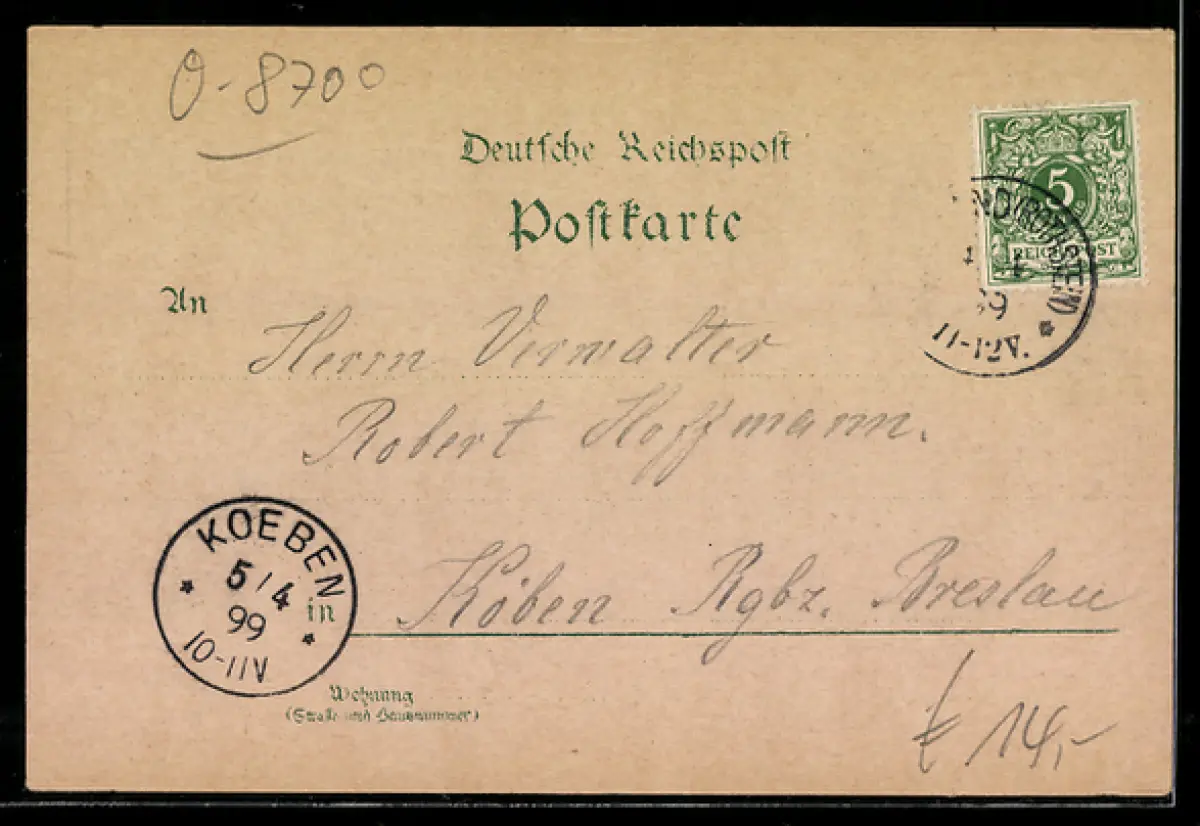 O-8700
Deutsche Reichspost
Postkarte
5
REICHSPOST
ND (ROTHSTEIN)
99
11-12V.
An
Herrn Verwalter
Robert Hoffmann.
KOEBEN
5/4
99
10-11V
in
Köben Rgbz. Breslau
Wohnung
(Straße und Hausnummer)
14,-